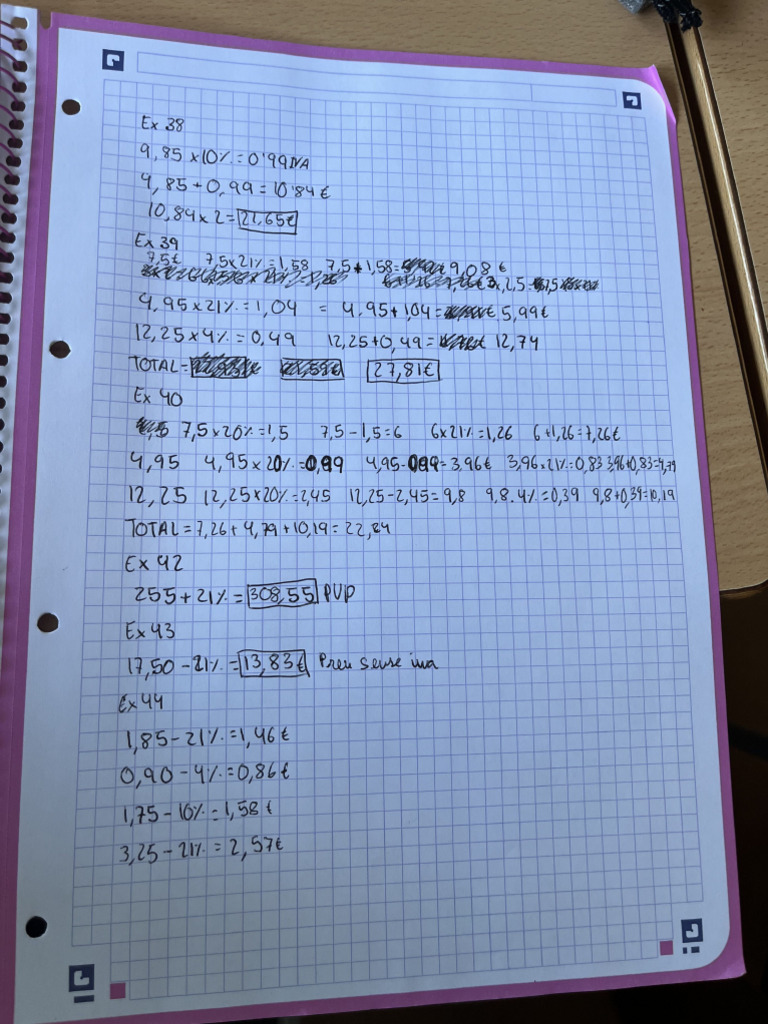 Ex 38
9,85 x 10% = 0'99 IVA
9,85 + 0,99 = 10'84 €
10,84 x 2 = 21,65€
Ex 39
7,5€ 7,5 x 21% = 1,58 7,5 + 1,58 = 9,08 €
4,95 x 21% = 1,04 = 4.95 + 1,04 = 5,99€
12,25 x 4% = 0,49 12,25 + 0,49 = 12,74
TOTAL = 27,81€
Ex 40
7,5 x 20% = 1,5 7,5 - 1,5 = 6 6 x 21% = 1,26 6 + 1,26 = 7,26€
4,95 4,95 x 20% = 0,99 4,95 - 0,99 = 3,96€ 3,96 x 21% = 0,83 3,96 + 0,83 = 4,79
12,25 12,25 x 20% = 2,45 12,25 - 2,45 = 9,8 9,8 . 4% = 0,39 9,8 + 0,39 = 10,19
TOTAL = 7,26 + 4,79 + 10,19 = 22,24
Ex 42
255 + 21% = 308,55 PVP
Ex 43
17,50 - 21% = 13,83€ Preu sense iva
Ex 44
1,85 - 21% = 1,46€
0,90 - 4% = 0,86€
1,75 - 10% = 1,58€
3,25 - 21% = 2,57€